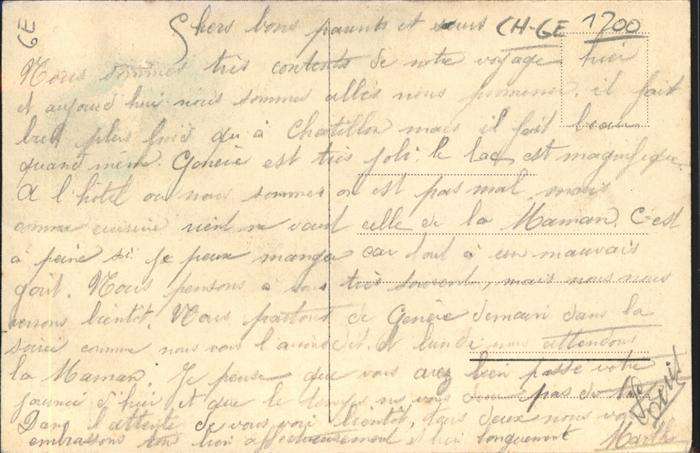 GE
Chers bons parents et sœurs CH-GE 1200
Nous sommes très contents de notre voyage hier
et aujourd'hui nous sommes allés nous promener. il fait
bien plus froid qu'à Chatillon mais il fait beau
quand même. Genève est très joli le lac est magnifique.
A l'hôtel ou nous sommes on est pas mal mais
comme cuisine rient ne vaut celle de la Maman. C'est
à peine si je peux manger car tout à un mauvais
goût. Nous pensons a vous très souvent, mais nous nous
verrons bientôt. Nous partons de Genève demain dans la
soirée comme nous vous l'avons dit et lundi nous attendons
la Maman. Je pense que vous avez bien passé votre
journée d'hier et que le temps ne vous dure pas de
Dans l'attente de vous voir bientôt, tous deux nous vous
embrassons tous bien affectueusement et bien longuement Marthe